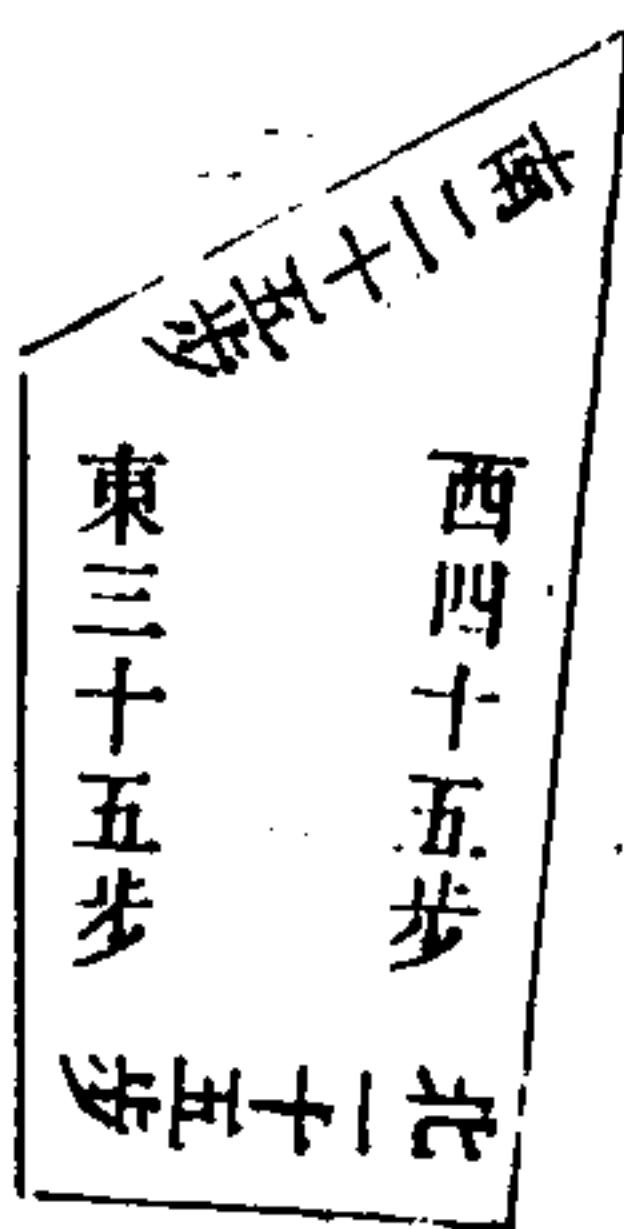 南二十五步
西四十五步
東三十五步
北一十五步